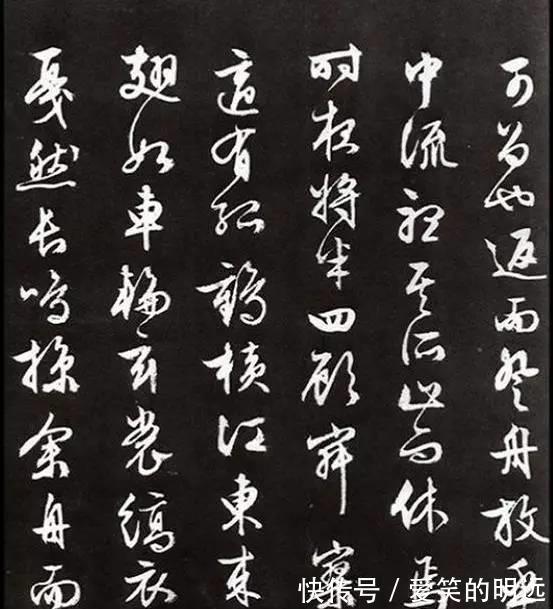 可留也返而登舟放乎
中流聽其所止而休焉
時夜將半四顧寂寥
適有孤鶴橫江東來
翅如車輪玄裳縞衣
戛然長鳴掠余舟而
快传号 / 爱笑的明远